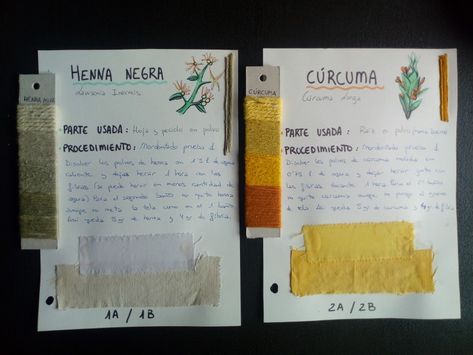 HENNA NEGRA
Lawsonia Inermis
HENNA NEGRA
PARTE USADA: Hoja y peciolo en polvo
PROCEDIMIENTO: Mordentado prueba 1
Disolver los polvos de henna en 1'5 l de agua
caliente, y dejar hervir 1 hora con las
fibras (se puede hervir en menos cantidad de
agua) Para el segundo baño no
aunque se meta la tela como en el 1 baño
5 gr de henna y 4 gr de fibra.
1A / 1B
CÚRCUMA
Curcuma longa
CÚRCUMA
PARTE USADA: Raíz en polvo
PROCEDIMIENTO: Mordentado prueba 1
Disolver los polvos de cúrcuma en
0'75 l de agua y dejar hervir junto con
las fibras durante 1 hora Para el 2 baño
no cúrcuma aunque
de tela 5 gr de cúrcuma y 4 gr de fibra
2A / 2B